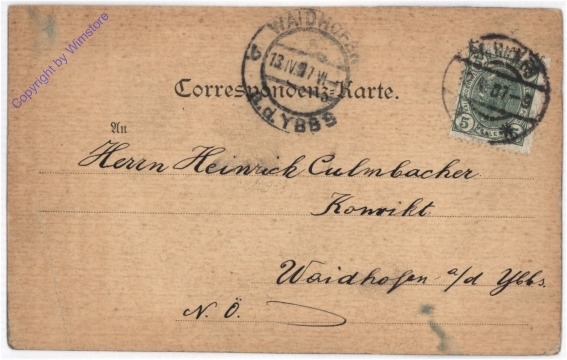 Copyright by Wimstore
WAIDHOFEN
13.IV.07.VI
a.d. YBBS
Correspondenz-Karte.
An
Herrn Heinrich Culmbacher
Konvikt
Waidhofen a/d Ybbs.
N. Ö.
5
5